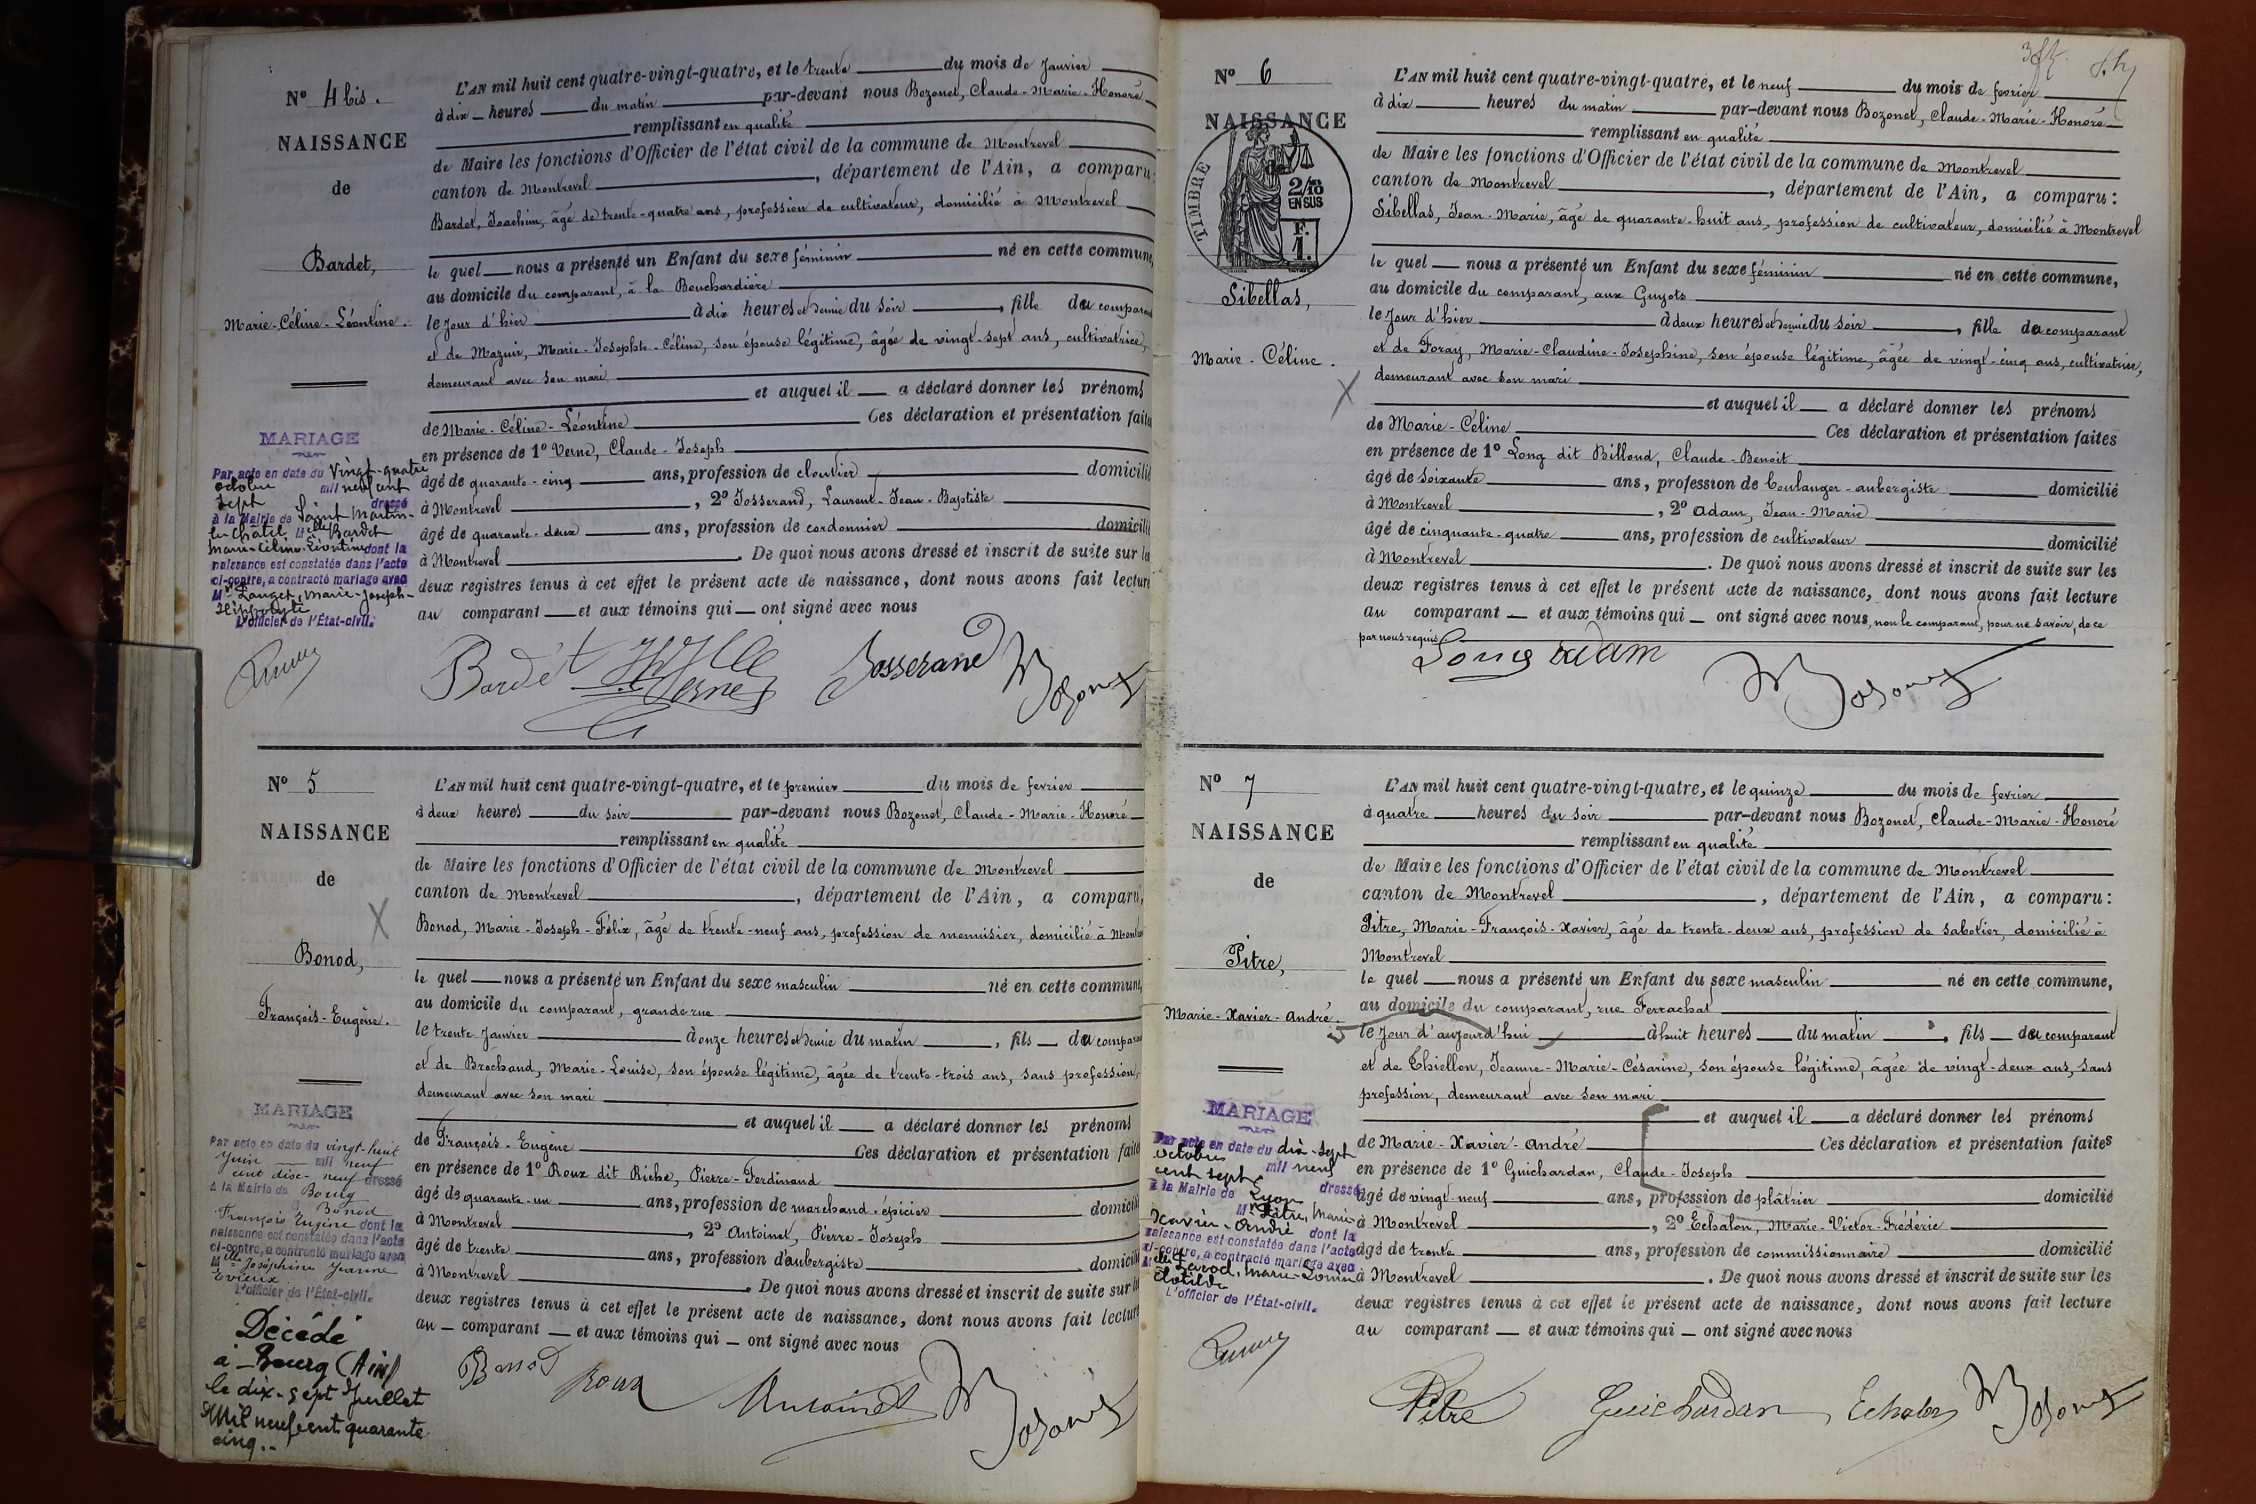 N° 4 bis.
NAISSANCE
de
Bardet,
Marie-Céline-Léontine.
L'AN mil huit cent quatre-vingt-quatre, et le trente du mois de Janvier
à dix heures du matin par-devant nous Bozonet, Claude-Marie-Honoré
remplissant en qualité
de Maire les fonctions d'Officier de l'état civil de la commune de Montrevel
canton de Montrevel, département de l'Ain, a comparu:
Bardet, Joachim, âgé de trente-quatre ans, profession de cultivateur, domicilié à Montrevel
le quel nous a présenté un Enfant du sexe féminin né en cette commune,
au domicile du comparant, à la Bouchardière
le jour d'hier à dix heures et demie du soir, fille du comparant
et de Mazuir, Marie-Josephte-Céline, son épouse légitime, âgée de vingt-sept ans, cultivatrice,
demeurant avec son mari
et auquel il a déclaré donner les prénoms
de Marie-Céline-Léontine Ces déclaration et présentation faites
en présence de 1° Verne, Claude-Joseph
âgé de quarante-cinq ans, profession de cloutier domicilié
à Montrevel, 2° Josserand, Laurent-Jean-Baptiste
âgé de quarante-deux ans, profession de cordonnier domicilié
à Montrevel. De quoi nous avons dressé et inscrit de suite sur les
deux registres tenus à cet effet le présent acte de naissance, dont nous avons fait lecture
au comparant et aux témoins qui ont signé avec nous
MARIAGE
Par acte en date du Vingt-quatre
octobre mil neuf cent
sept dressé
à la Mairie de Saint Martin-
le-Châtel Mlle Bardet
Marie-Céline-Léontine dont la
naissance est constatée dans l'acte
ci-contre, a contracté mariage avec
Mr Langet, Marie-Joseph-
Hippolyte
L'officier de l'État-civil.
Bardet Verne Josserand Bozonet
N° 5
NAISSANCE
de
Bonod,
François-Eugène.
L'AN mil huit cent quatre-vingt-quatre, et le premier du mois de fevrier
à deux heures du soir par-devant nous Bozonet, Claude-Marie-Honoré
remplissant en qualité
de Maire les fonctions d'Officier de l'état civil de la commune de Montrevel
canton de Montrevel, département de l'Ain, a comparu:
Bonod, Marie-Joseph-Félix, âgé de trente-neuf ans, profession de menuisier, domicilié à Montrevel
le quel nous a présenté un Enfant du sexe masculin né en cette commune,
au domicile du comparant, grande rue
le trente Janvier à onze heures et demie du matin, fils du comparant
et de Brochand, Marie-Louise, son épouse légitime, âgée de trente-trois ans, sans profession,
demeurant avec son mari
et auquel il a déclaré donner les prénoms
de François-Eugène Ces déclaration et présentation faites
en présence de 1° Roux dit Riche, Pierre-Ferdinand
âgé de quarante-un ans, profession de marchand-épicier domicilié
à Montrevel, 2° Antoinet, Pierre-Joseph
âgé de trente ans, profession d'aubergiste domicilié
à Montrevel. De quoi nous avons dressé et inscrit de suite sur les
deux registres tenus à cet effet le présent acte de naissance, dont nous avons fait lecture
au comparant et aux témoins qui ont signé avec nous
MARIAGE
Par acte en date du vingt-huit
Juin mil neuf
cent dix-neuf dressé
à la Mairie de Bourg
Bonod
François Eugène dont la
naissance est constatée dans l'acte
ci-contre, a contracté mariage avec
Mlle Joséphine Jeanne
Evieux
L'officier de l'État-civil.
Décédé
à Bourg (Ain)
le dix-sept Juillet
Mil neuf cent quarante
cinq..
Bonod Roux Antoinet Bozonet
N° 6
NAISSANCE
de
TIMBRE
2/10 EN SUS
F. 1.
Sibellas,
Marie-Céline.
L'AN mil huit cent quatre-vingt-quatre, et le neuf du mois de fevrier
à dix heures du matin par-devant nous Bozonet, Claude-Marie-Honoré
remplissant en qualité
de Maire les fonctions d'Officier de l'état civil de la commune de Montrevel
canton de Montrevel, département de l'Ain, a comparu:
Sibellas, Jean-Marie, âgé de quarante-huit ans, profession de cultivateur, domicilié à Montrevel
le quel nous a présenté un Enfant du sexe féminin né en cette commune,
au domicile du comparant, aux Guyots
le jour d'hier à deux heures et demie du soir, fille du comparant
et de Foray, Marie-Claudine-Josephine, son épouse légitime, âgée de vingt-cinq ans, cultivatrice,
demeurant avec son mari
et auquel il a déclaré donner les prénoms
de Marie-Céline Ces déclaration et présentation faites
en présence de 1° Long dit Billoud, Claude-Benoit
âgé de soixante ans, profession de boulanger-aubergiste domicilié
à Montrevel, 2° Adam, Jean-Marie
âgé de cinquante-quatre ans, profession de cultivateur domicilié
à Montrevel. De quoi nous avons dressé et inscrit de suite sur les
deux registres tenus à cet effet le présent acte de naissance, dont nous avons fait lecture
au comparant et aux témoins qui ont signé avec nous, non le comparant, pour ne savoir, de ce
par nous requis.
Long Adam Bozonet
N° 7
NAISSANCE
de
Pitre,
Marie-Xavier-André.
L'AN mil huit cent quatre-vingt-quatre, et le quinze du mois de fevrier
à quatre heures du soir par-devant nous Bozonet, Claude-Marie-Honoré
remplissant en qualité
de Maire les fonctions d'Officier de l'état civil de la commune de Montrevel
canton de Montrevel, département de l'Ain, a comparu:
Pitre, Marie-François-Xavier, âgé de trente-deux ans, profession de sabotier, domicilié à
Montrevel
le quel nous a présenté un Enfant du sexe masculin né en cette commune,
au domicile du comparant, rue Ferrachat
le jour d'aujourd'hui à huit heures du matin, fils du comparant
et de Thiellon, Jeanne-Marie-Césarine, son épouse légitime, âgée de vingt-deux ans, sans
profession, demeurant avec son mari
et auquel il a déclaré donner les prénoms
de Marie-Xavier-André Ces déclaration et présentation faites
en présence de 1° Guichardan, Claude-Joseph
âgé de vingt-neuf ans, profession de plâtrier domicilié
à Montrevel, 2° Echalon, Marie-Victor-Frédéric
âgé de trente ans, profession de commissionnaire domicilié
à Montrevel. De quoi nous avons dressé et inscrit de suite sur les
deux registres tenus à cet effet le présent acte de naissance, dont nous avons fait lecture
au comparant et aux témoins qui ont signé avec nous
MARIAGE
Par acte en date du dix-sept
octobre mil neuf
cent sept dressé
à la Mairie de Lyon
Mr Pitre, Marie
Xavier-André dont la
naissance est constatée dans l'acte
ci-contre, a contracté mariage avec
Mlle Favod, Marie-Louise
Clotilde
L'officier de l'État-civil.
Pitre Guichardan Echalon Bozonet